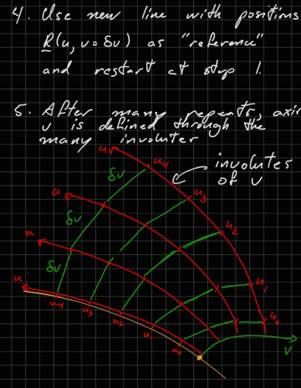 4. Use new line with positions
R(u, v=δv) as "reference"
and restart at step 1.
5. After many repeats, axis
v is defined through the
many involutes
u u4 involutes
of v
δv u3
u
δv u2
u
δv u1
u u0
u4 u3 u2 u1 u0
v